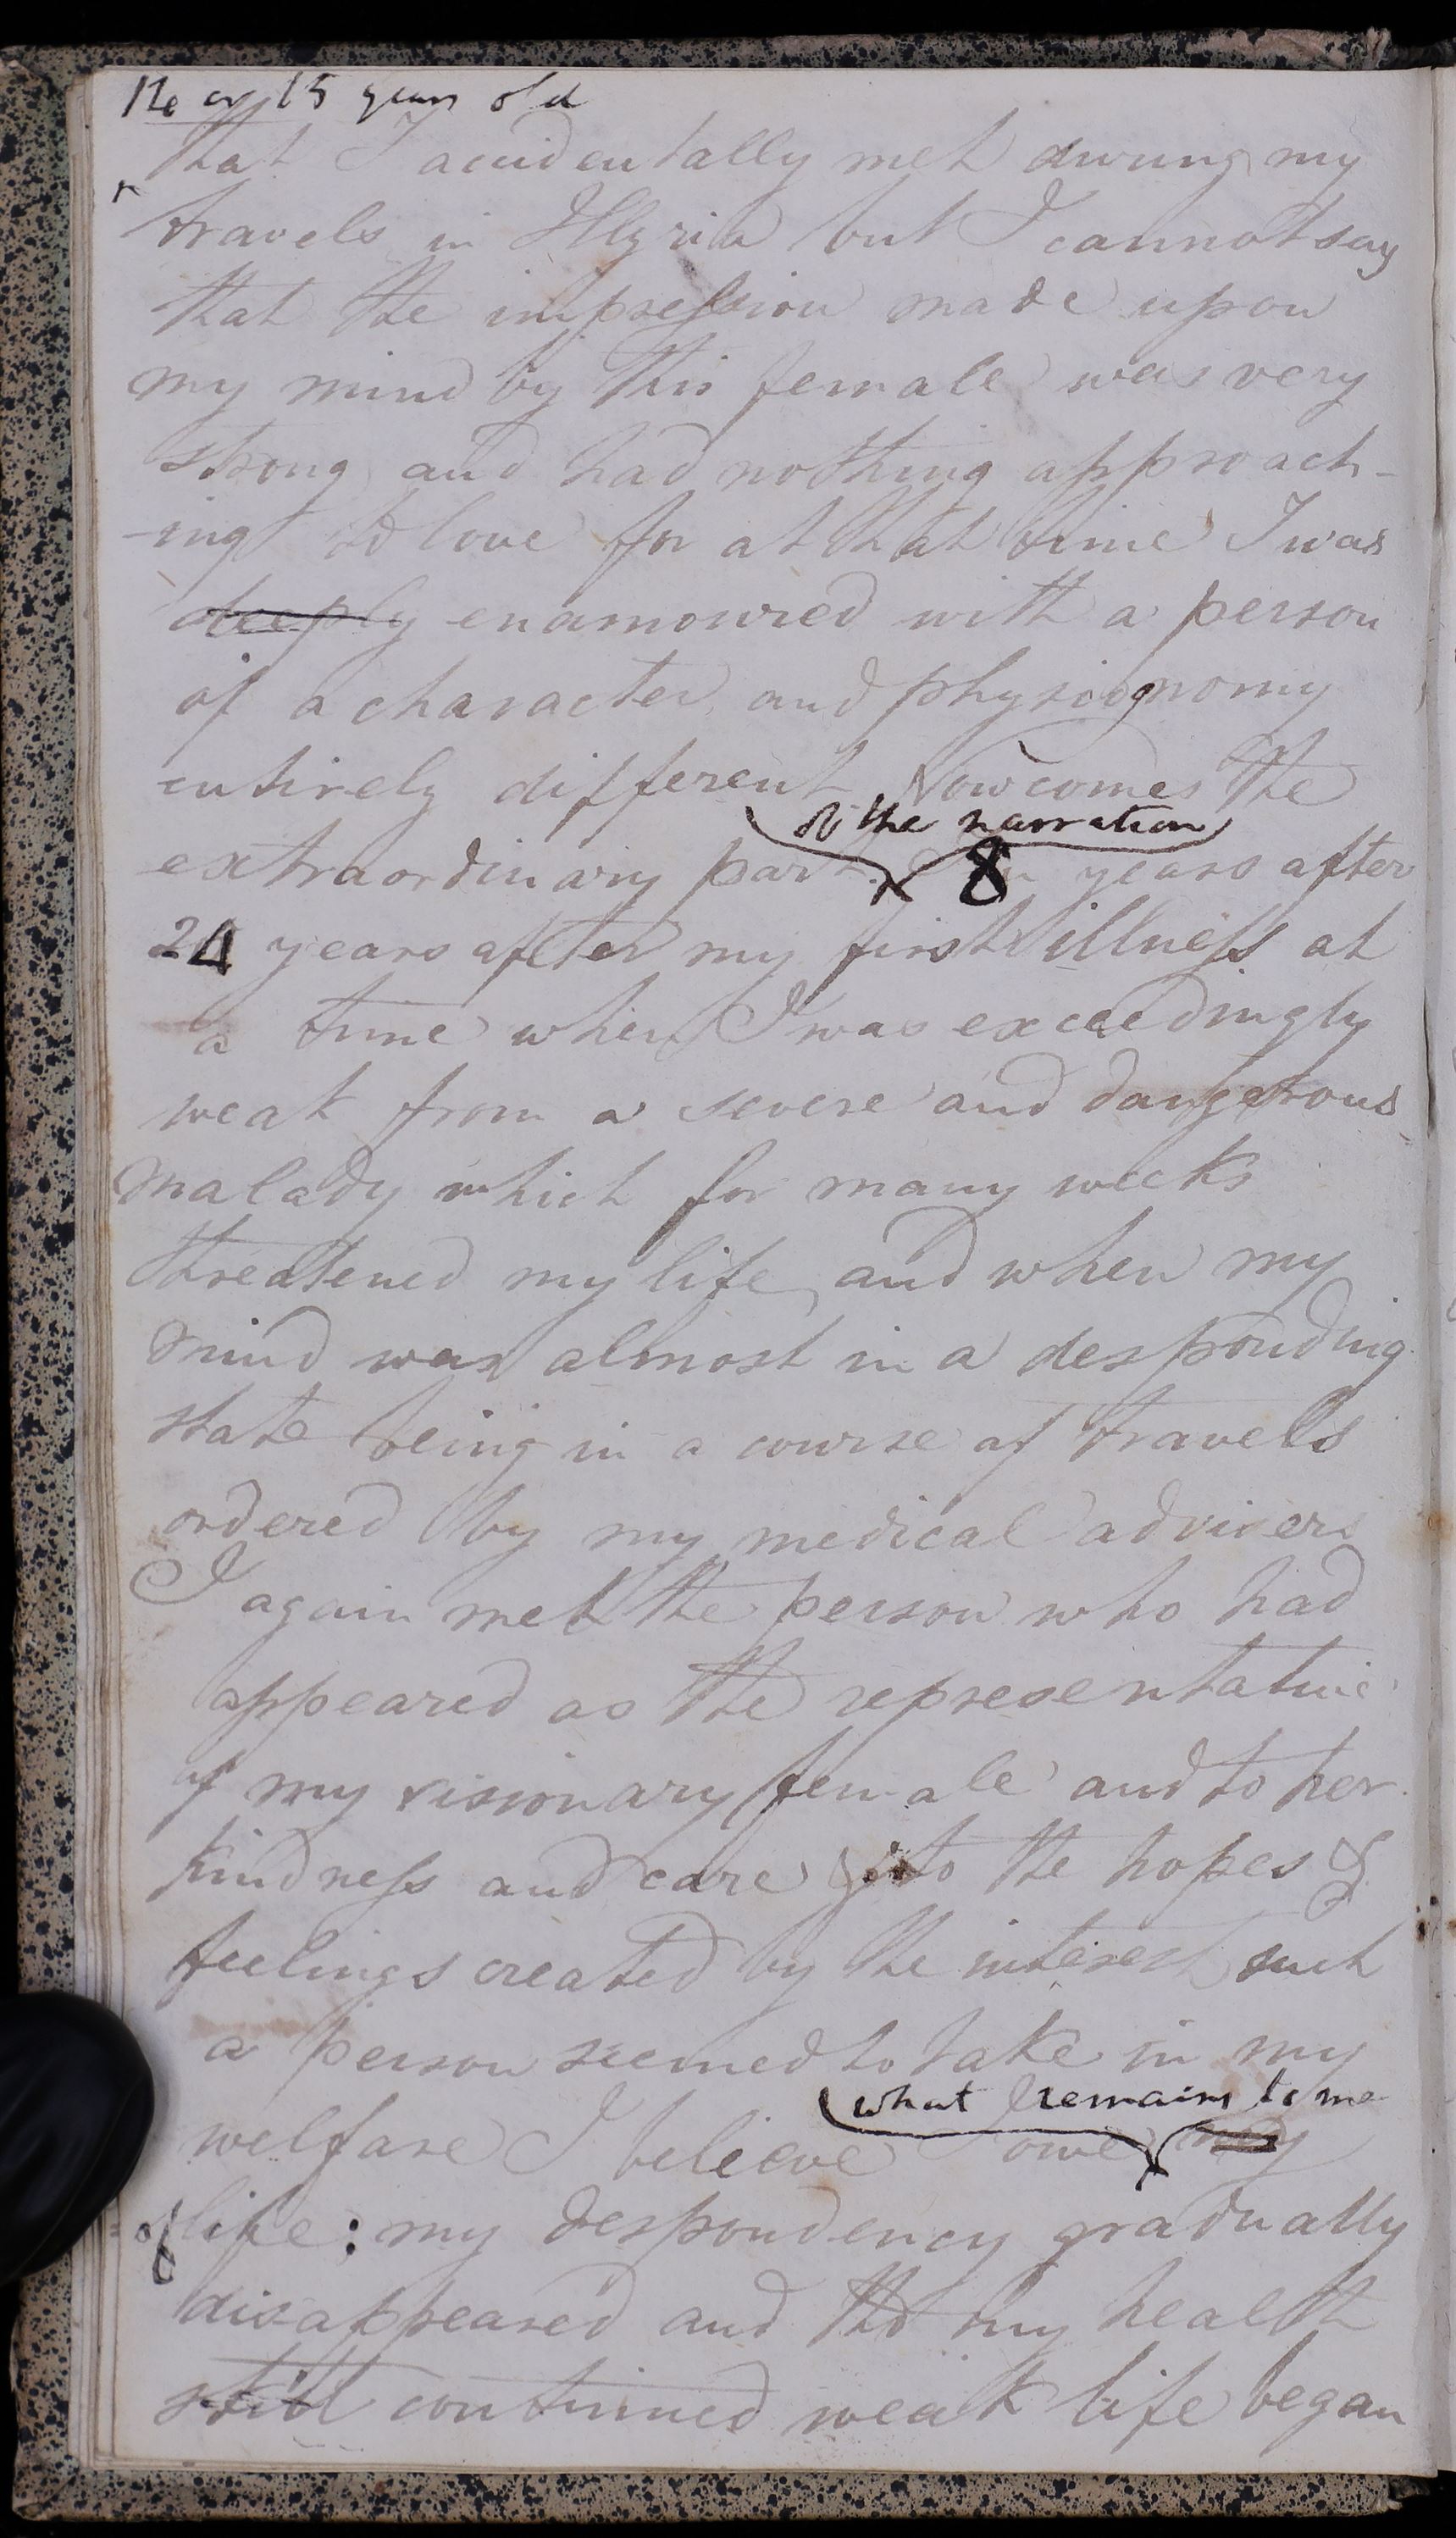 14 or 15 years old
that I accidentally met during my
travels in Illyria but I cannot say
that the impression made upon
my mind by this female was very
strong and had nothing approach-
-ing to love for at that time I was
deeply enamoured with a person
of a character and physiognomy
entirely different Now comes the
of the narration
extraordinary part. 8 years after
24 years after my first illness at
a time when I was exceedingly
weak from a severe and dangerous
malady which for many weeks
threatened my life, and when my
mind was almost in a desponding
state being in a course of travels
ordered by my medical advisers
I again met the person who had
appeared as the representative
of my visionary female and to her
kindness and care & to the hopes &
feelings created by the interest such
a person seemed to take in my
what remains to me
welfare I beleeve I owe my
of life: my despondency gradually
disappeared and tho my health
still continued weak life began